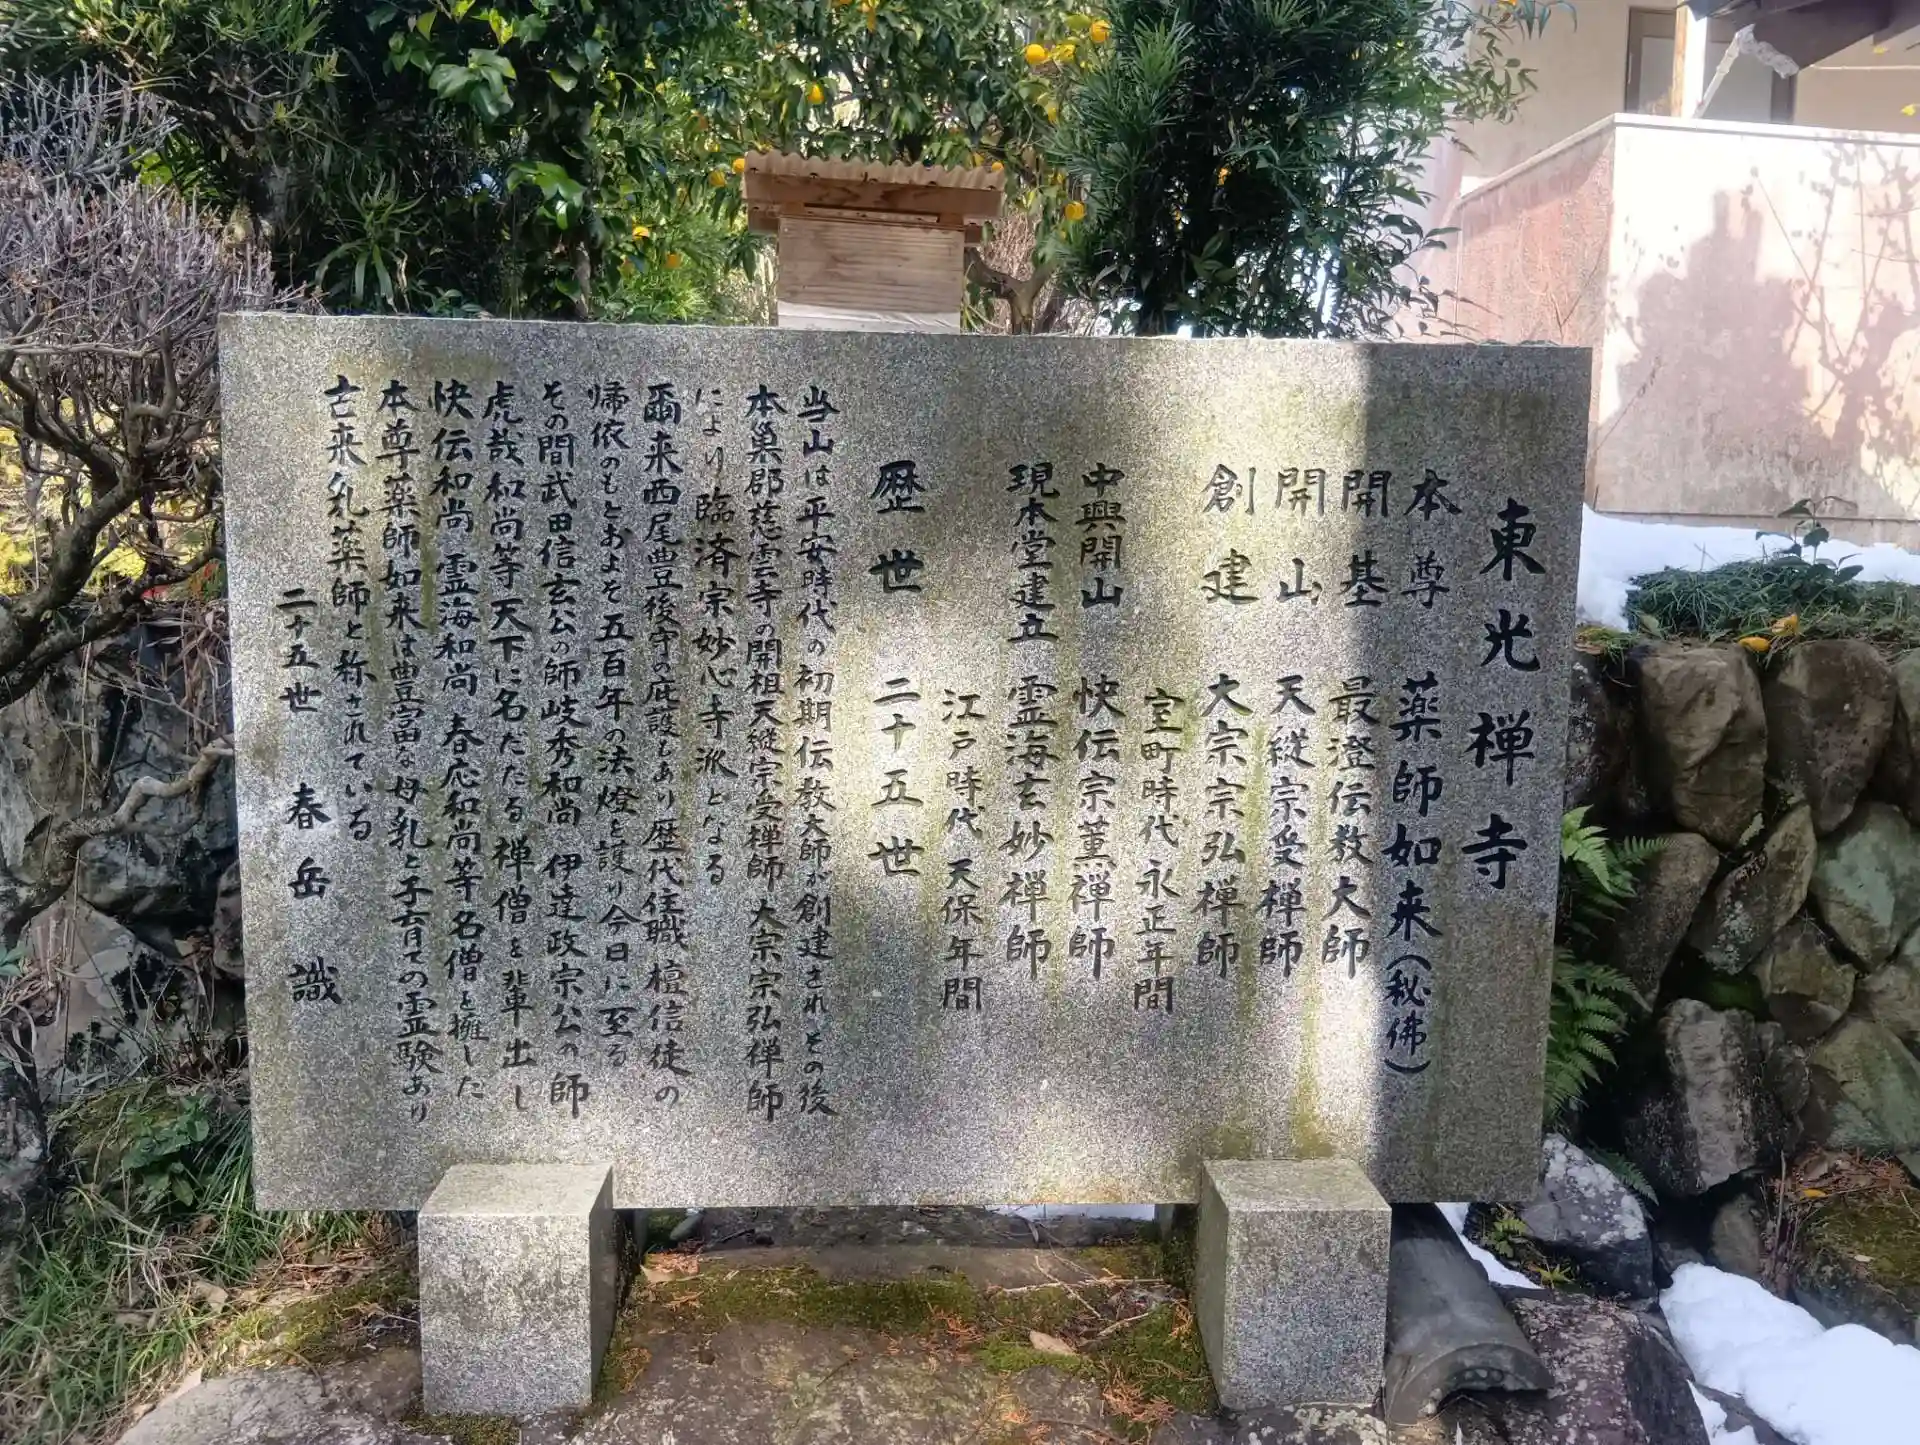 東光禅寺
本尊 薬師如来(秘佛)
開基 最澄伝教大師
開山 天縦宗受禅師
創建 大宗宗弘禅師
室町時代永正年間
中興開山 快伝宗薫禅師
現本堂建立 霊海玄妙禅師
江戸時代天保年間
歴世 二十五世
当山は平安時代の初期伝教大師が創建されその後
本巣郡慈雲寺の開祖天縦宗受禅師大宗宗弘禅師
により臨済宗妙心寺派となる
爾来西尾豊後守の庇護もあり歴代住職檀信徒の
帰依のもとおよそ五百年の法燈を護り今日に至る
その間武田信玄公の師岐秀和尚 伊達政宗公の師
虎哉和尚等天下に名だたる禅僧を輩出し
快伝和尚 霊海和尚 春応和尚等名僧を擁した
本尊薬師如来は豊富な母乳と子育ての霊験あり
古来乳薬師と称されている
二十五世 春岳 識